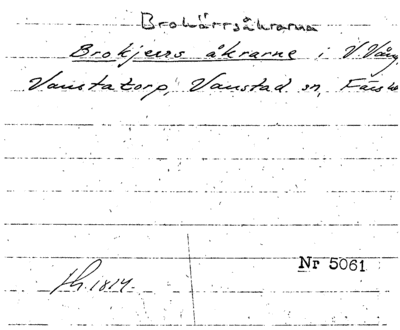 Brokärrsåkrarna
Brokjers åkrarne i V. Vång
Vanstatorp, Vanstad sn, Färs h
Nr 5061
1814.